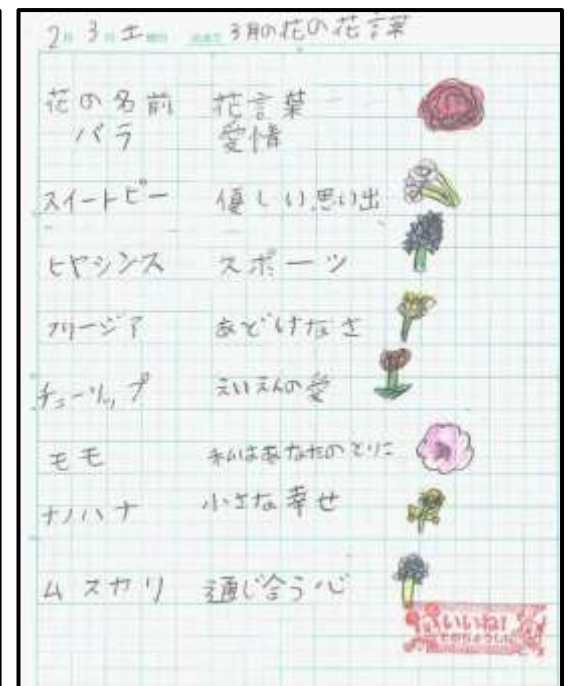 2月 3日 土曜日 3月の花の花言葉
花の名前 花言葉
バラ 愛情
スイートピー 優しい思い出
ヒヤシンス スポーツ
フリージア あどけなさ
チューリップ えいえんの愛
モモ 私はあなたのとりこ
ナノハナ 小さな幸せ
ムスカリ 通じ合う心
いいね!